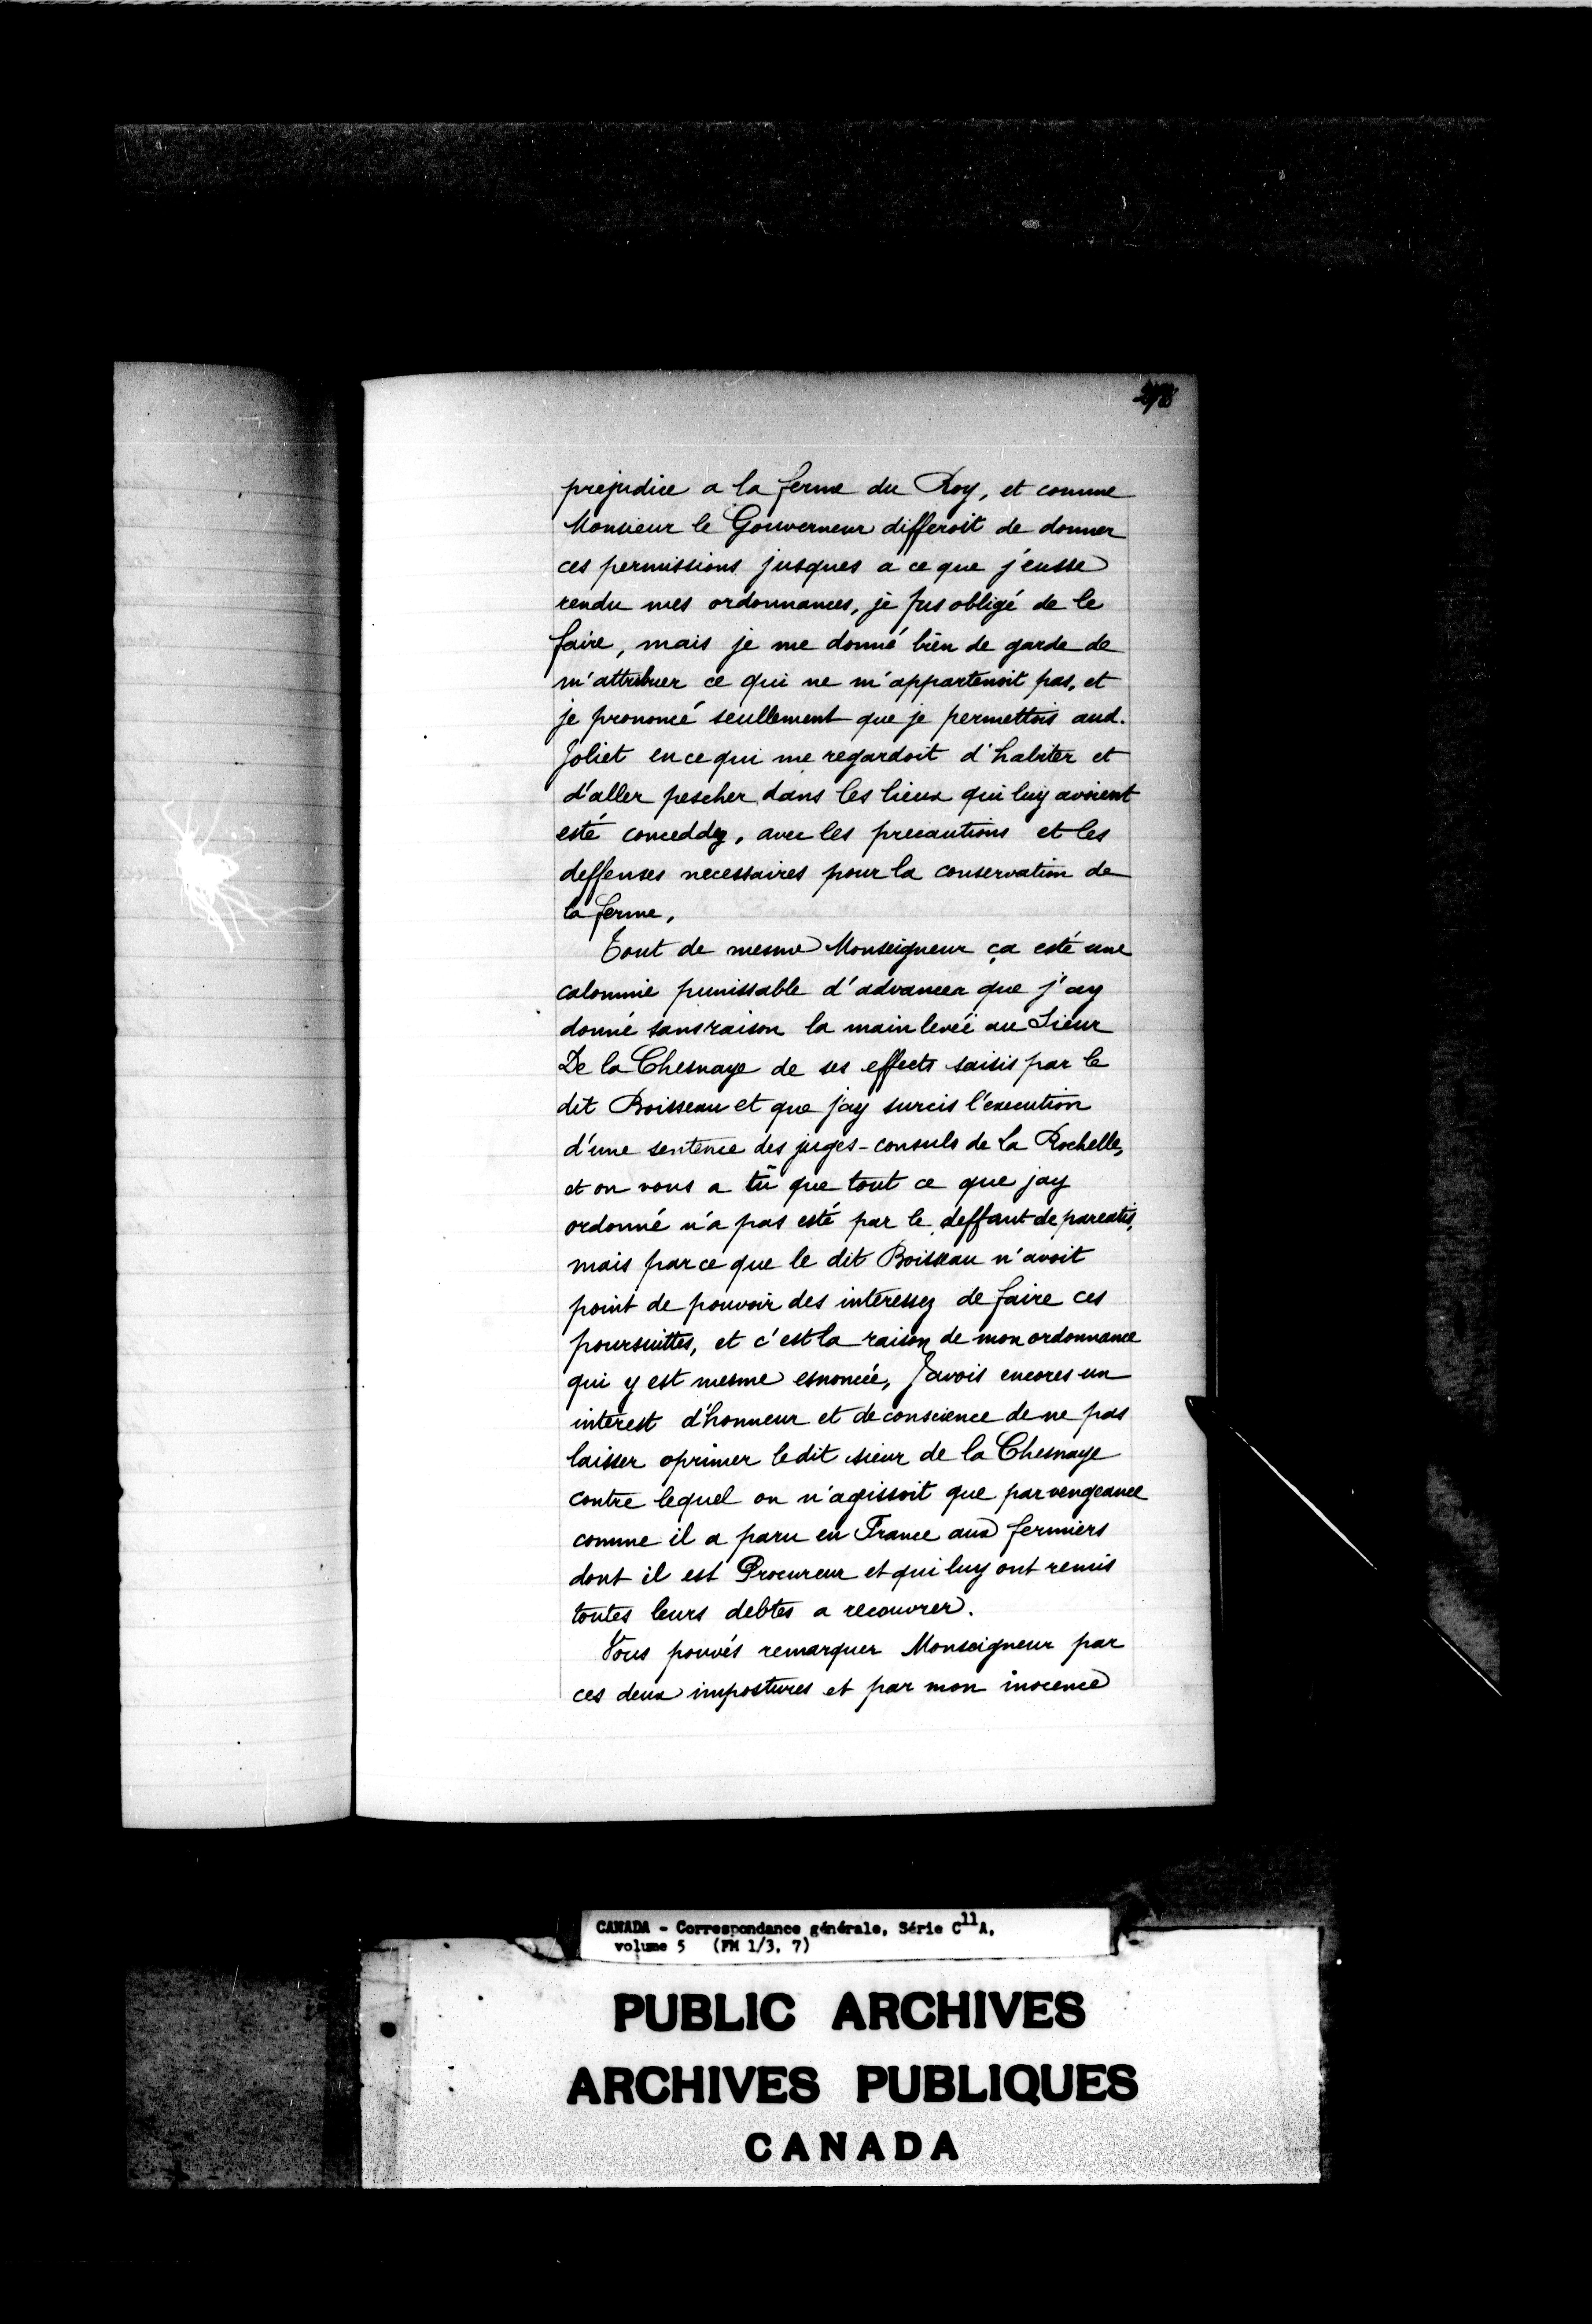 prejudice a la ferme du Roy, et comme
Monsieur le Gouverneur differoit de donner
ces permissions jusques a ce que j'eusse
rendu mes ordonnances, je fus obligé de le
faire, mais je me donné bien de garde de
m'attribuer ce qui ne m'appartenoit pas, et
je prononcé seullement que je permettois aud.
Joliet en ce qui me regardoit d'habiter et
d'aller pescher dans les lieux qui luy avoient
esté conceddez, avec les precautions et les
deffenses necessaires pour la conservation de
la ferme.
Tout de mesme Monseigneur ça esté une
calomnie punissable d'advancer que j'ay
donné sans raison la main levée au Sieur
De la Chesnaye de ses effects saisis par le
dit Boisseau et que jay surcis l'execution
d'une sentence des juges-consuls de La Rochelle,
et on vous a tû que tout ce que jay
ordonné n'a pas esté par le deffaut de pareatis,
mais parce que le dit Boisseau n'avoit
point de pouvoir des interessez de faire ces
poursuittes, et c'est la raison de mon ordonnance
qui y est mesme esnoncée, J'avois encores un
interest d'honneur et de conscience de ne pas
laisser oprimer ledit sieur de la Chesnaye
contre lequel on n'agissoit que par vengeance
comme il a paru en France aux fermiers
dont il est Procureur et qui luy ont remis
toutes leurs debtes a recouvrer.
Vous pouvés remarquer Monseigneur par
ces deux impostures et par mon inocence
CANADA - Correspondance générale, Série C11A,
volume 5 (FM 1/3, 7)
PUBLIC ARCHIVES
ARCHIVES PUBLIQUES
CANADA